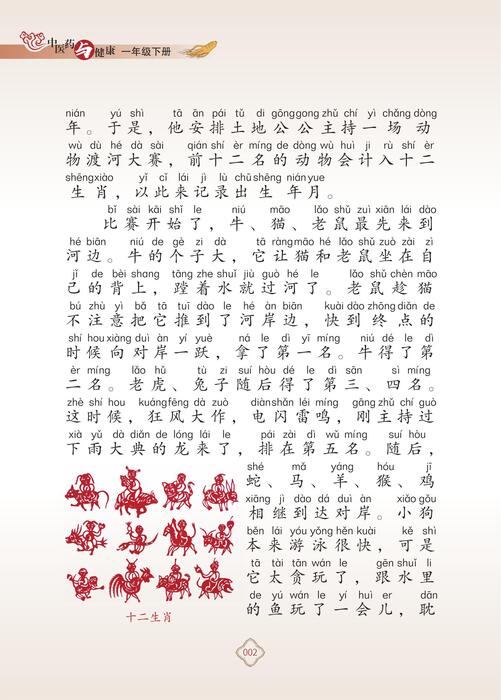 中医药与健康 一年级下册
nián yú shì tā ān pái tǔ di gōnggong zhǔ chí yì chǎng dòng
年。于是，他安排土地公公主持一场 动
wù dù hé dà sài qián shí èr míng de dòng wù huì jì rù shí èr
物渡河大赛，前十二名的动物会计入十二
shēngxiào yǐ cǐ lái jì lù chū shēng niányue
生肖，以此来记录出生 年月。
bǐ sài kāi shǐ le niú māo lǎo shǔ zuì xiān lái dào
比赛开始了，牛、猫、老鼠最先来到
hé biān niú de gè zi dà tā ràng māo hé lǎo shǔ zuò zài zì
河边。牛的个子大，它让猫和老鼠坐在自
jǐ de bèi shang tāng zhe shuǐ jiù guò hé le lǎo shǔ chèn māo
己的背上，蹚着水就过河了。老鼠趁猫
bú zhù yì bǎ tā tuī dào le hé àn biān kuài dào zhōng diǎn de
不注意把它推到了河岸边，快到终点的
shí hou xiàng duì àn yí yuè ná le dì yī míng niú dé le dì
时候向对岸一跃，拿了第一名。牛得了第
èr míng lǎo hǔ tù zi suí hòu dé le dì sān sì míng
二名。老虎、兔子随后得了第三、四名。
zhè shí hou kuángfēng dà zuò diànshǎn léi míng gāng zhǔ chí guò
这时候，狂风大作，电闪雷鸣，刚主持过
xià yǔ dà diǎn de lóng lái le pái zài dì wǔ míng suí hòu
下雨大典的龙来了，排在第五名。随后，
shé mǎ yáng hóu jī
蛇、马、羊、猴、鸡
xiāng jì dào dá duì àn xiǎo gǒu
相继到达对岸。小狗
běn lái yóu yǒng hěn kuài kě shì
本来游泳很快，可是
tā tài tān wán le gēn shuǐ lǐ
它太贪玩了，跟水里
de yú wán le yí huì er dān
的鱼玩了一会儿，耽
十二生肖
002